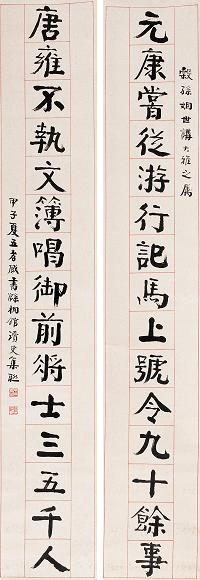 穀孫姻世講大雅之屬
元康嘗從游行記馬上號令九十餘事
唐雍不執文簿唱御前將士三五千人
甲子夏五孝臧書館滑叟集聯